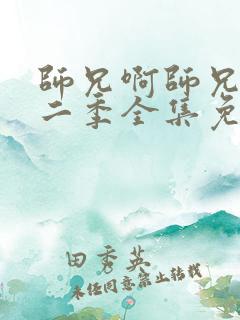 師兄啊師兄
二季全集免
田秀英
未经同意禁止转载